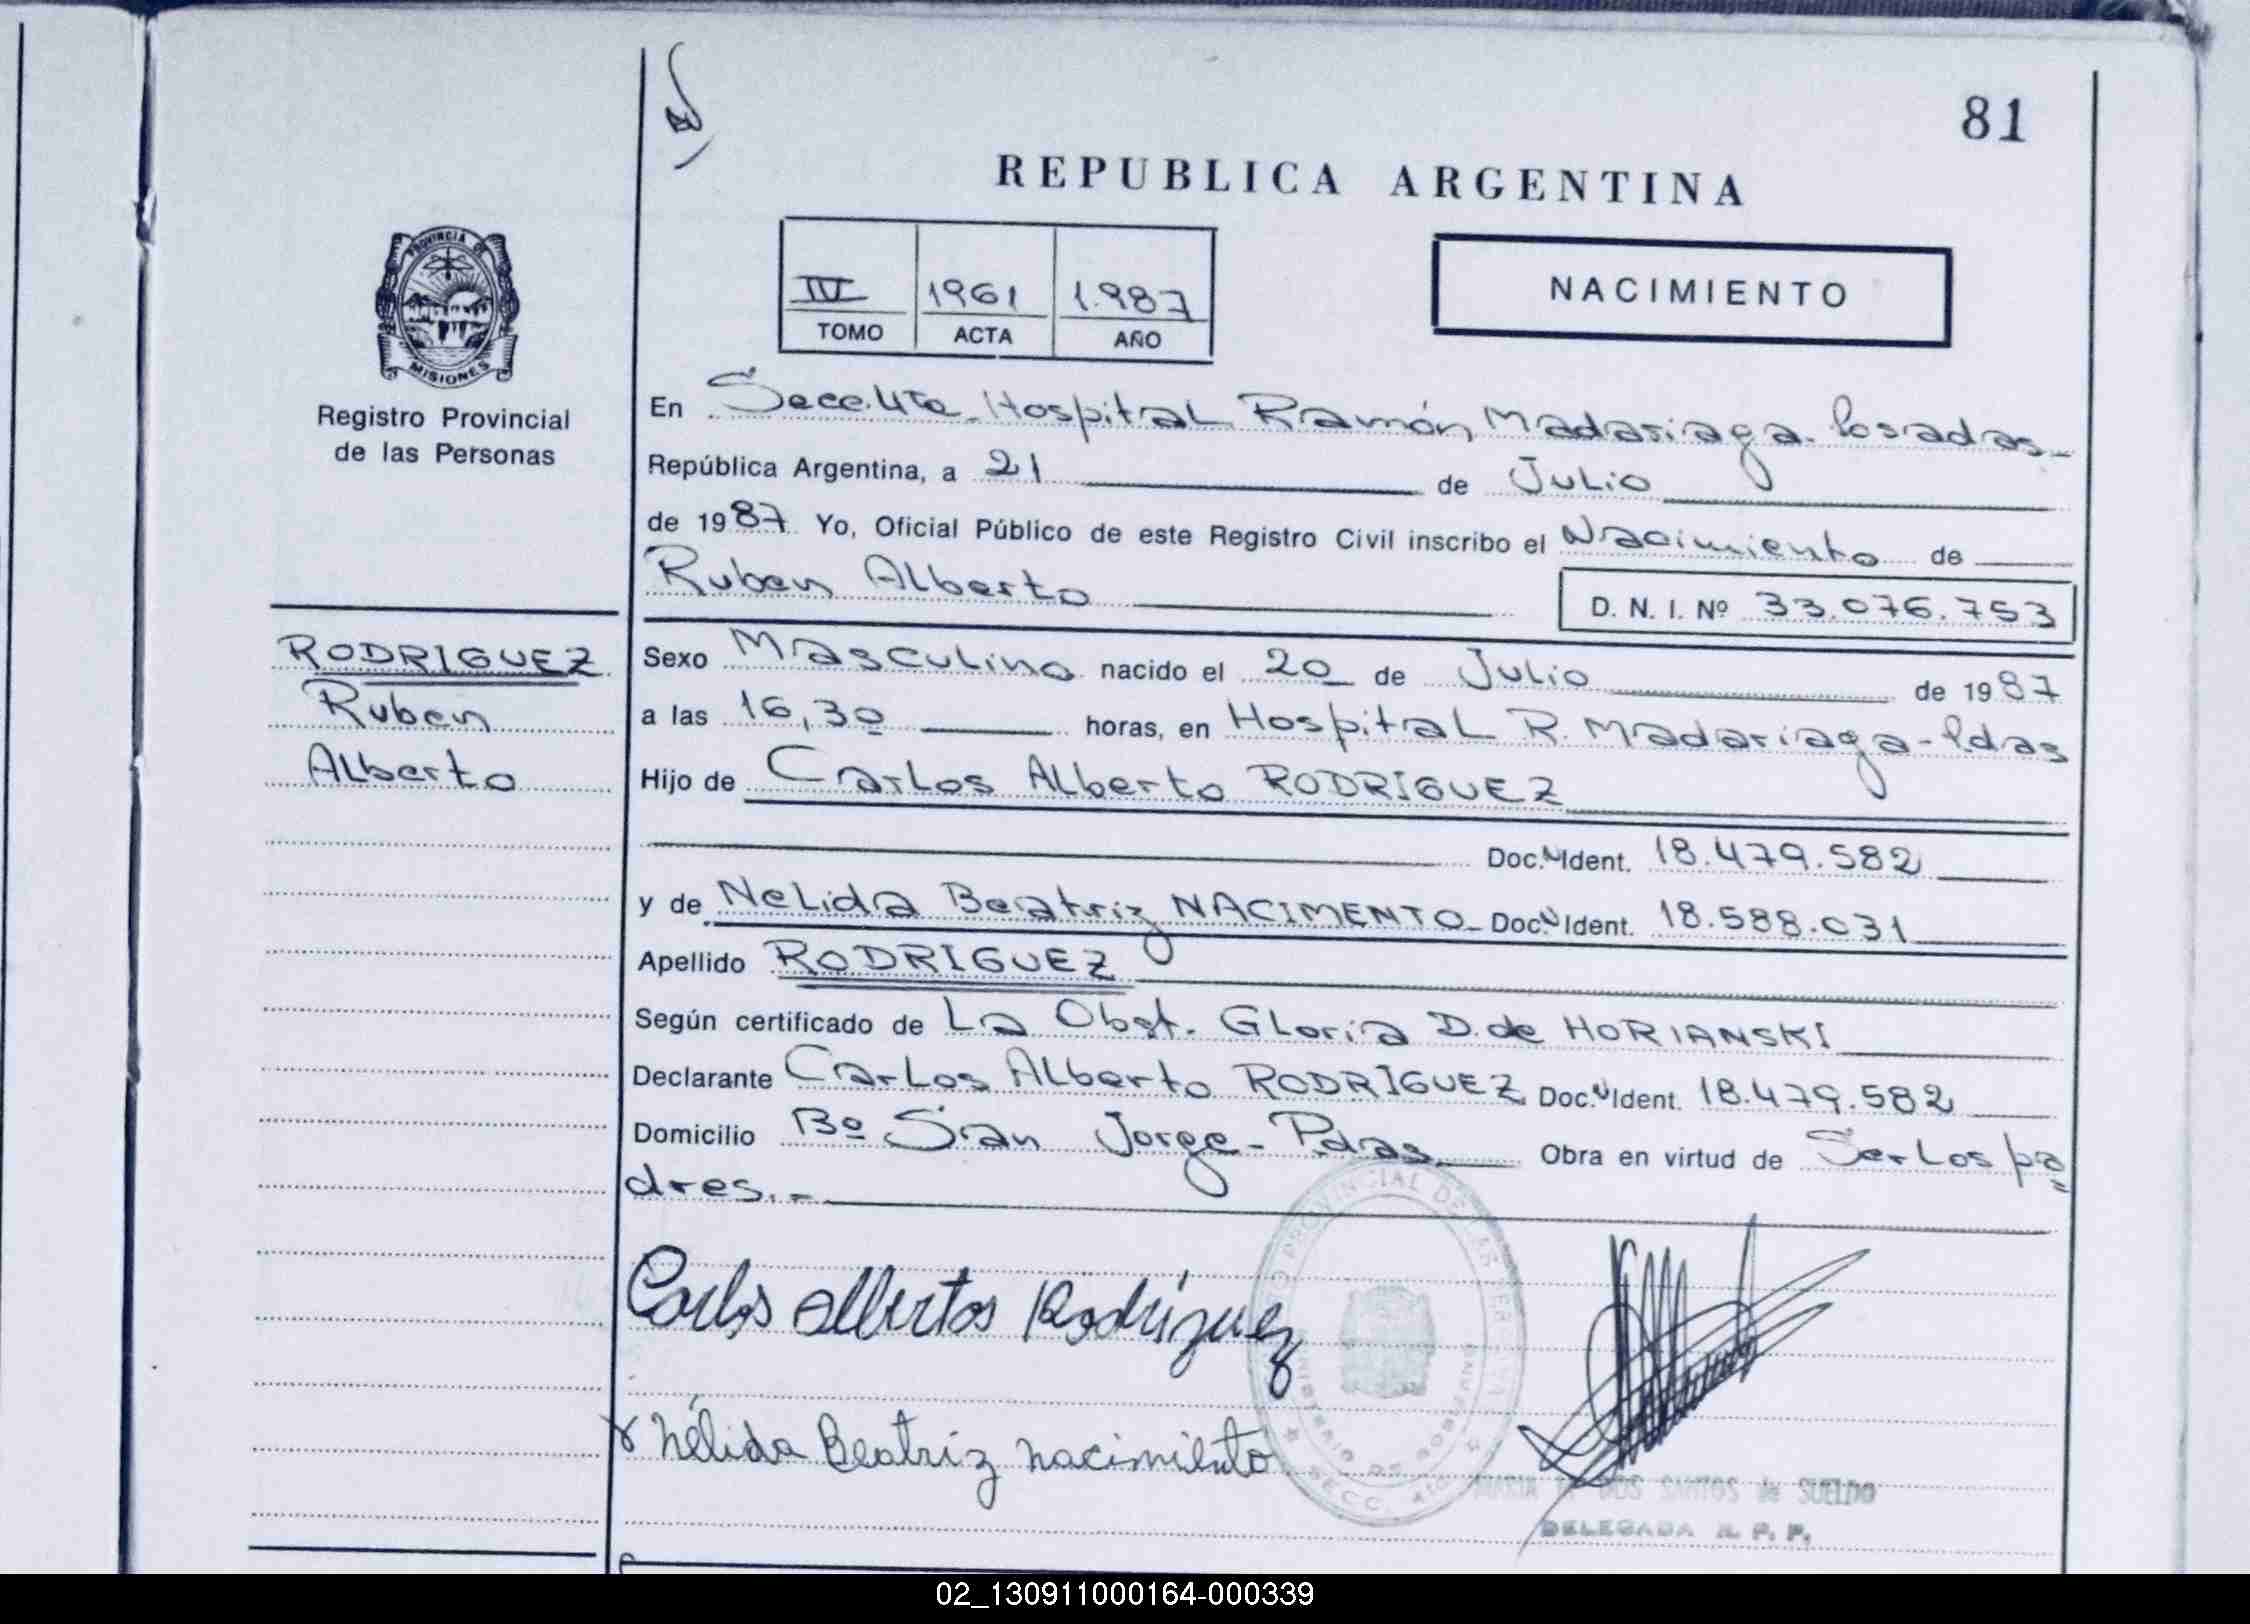 81
REPUBLICA ARGENTINA
PROVINCIA DE
MISIONES
Registro Provincial
de las Personas
IV 1961 1.987
TOMO ACTA AÑO
NACIMIENTO
En Secc. 4ta Hospital Ramón Madariaga - Posadas -
República Argentina, a 21 de Julio
de 1987 Yo, Oficial Público de este Registro Civil inscribo el Nacimiento de
Ruben Alberto
D. N. I. Nº 33.076.753
RODRIGUEZ
Ruben
Alberto
Sexo Masculino nacido el 20 de Julio de 1987
a las 16,30 horas, en Hospital R. Madariaga - Pdas
Hijo de Carlos Alberto RODRIGUEZ
Doc. N Ident. 18.479.582
y de Nelida Beatriz NACIMENTO - Doc. N Ident. 18.588.031
Apellido RODRIGUEZ
Según certificado de La Obst. Gloria D. de HORIANSKI
Declarante Carlos Alberto RODRIGUEZ Doc. N Ident. 18.479.582
Domicilio Bº San Jorge - Pdas Obra en virtud de Ser los pa=
dres. -
Carlos Albertos Rodriguez
Nélida Beatriz nacimiento
PROVINCIAL DE LAS PERSONAS
MINISTERIO DE GOBIERNO
SECC. 4ta
MARIA DOS SANTOS de SUELDO
DELEGADA R. P. P.
02_130911000164-000339